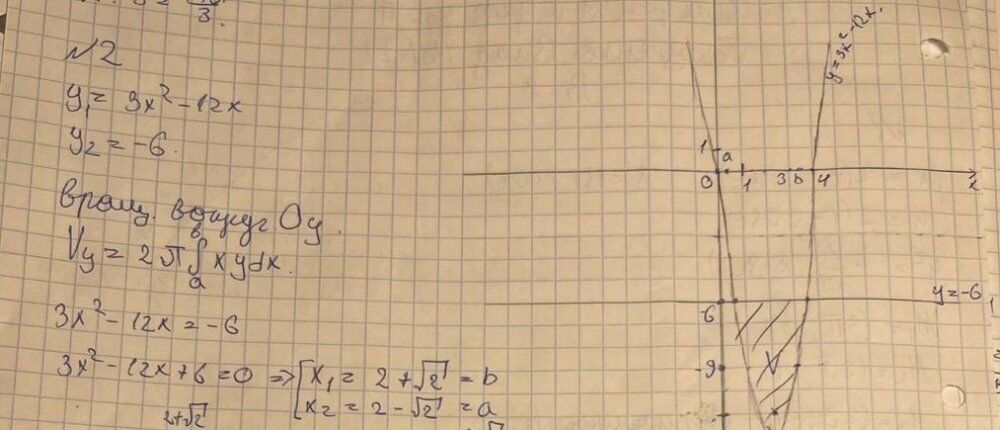 3.
№2
y₁ = 3x² - 12x
y₂ = -6.
вращ. вокруг Oy.
b
Vy = 2π∫xydx.
a
3x² - 12x = -6
3x² - 12x + 6 = 0 => [x₁ = 2 + √2 = b
x₂ = 2 - √2 = a
2+√2
y = 3x² - 12x.
1
a
0 1 3 b 4 x
y = -6
-6
-9
V